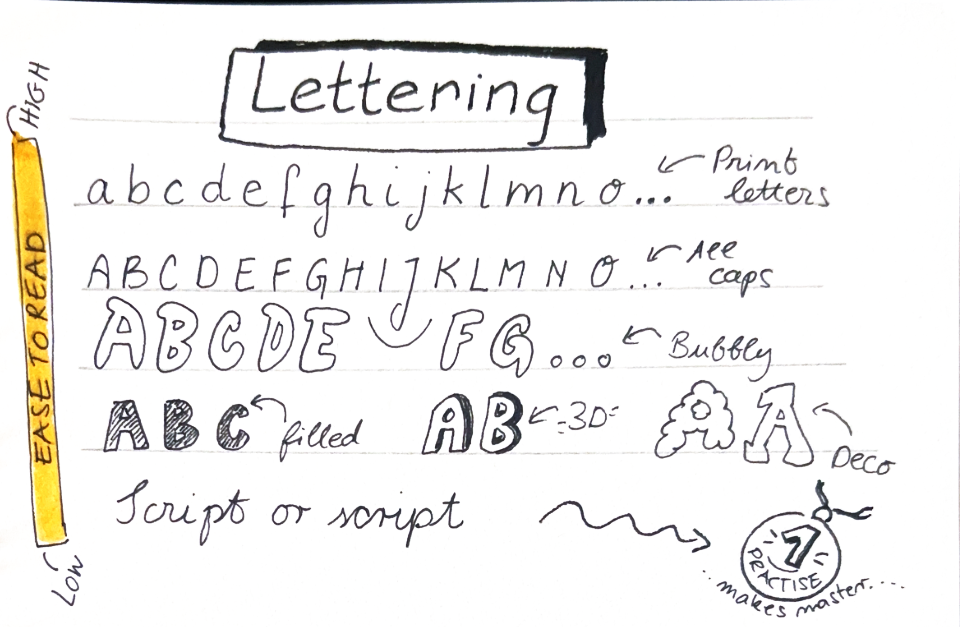 Lettering
HIGH
EASE TO READ
LOW
a b c d e f g h i j k l m n o ...
Print
letters
A B C D E F G H I J K L M N O ...
All
caps
A B C D E F G ...
Bubbly
A B C filled
A B 3D
A A Deco
Script or script
1
PRACTISE
..makes master....